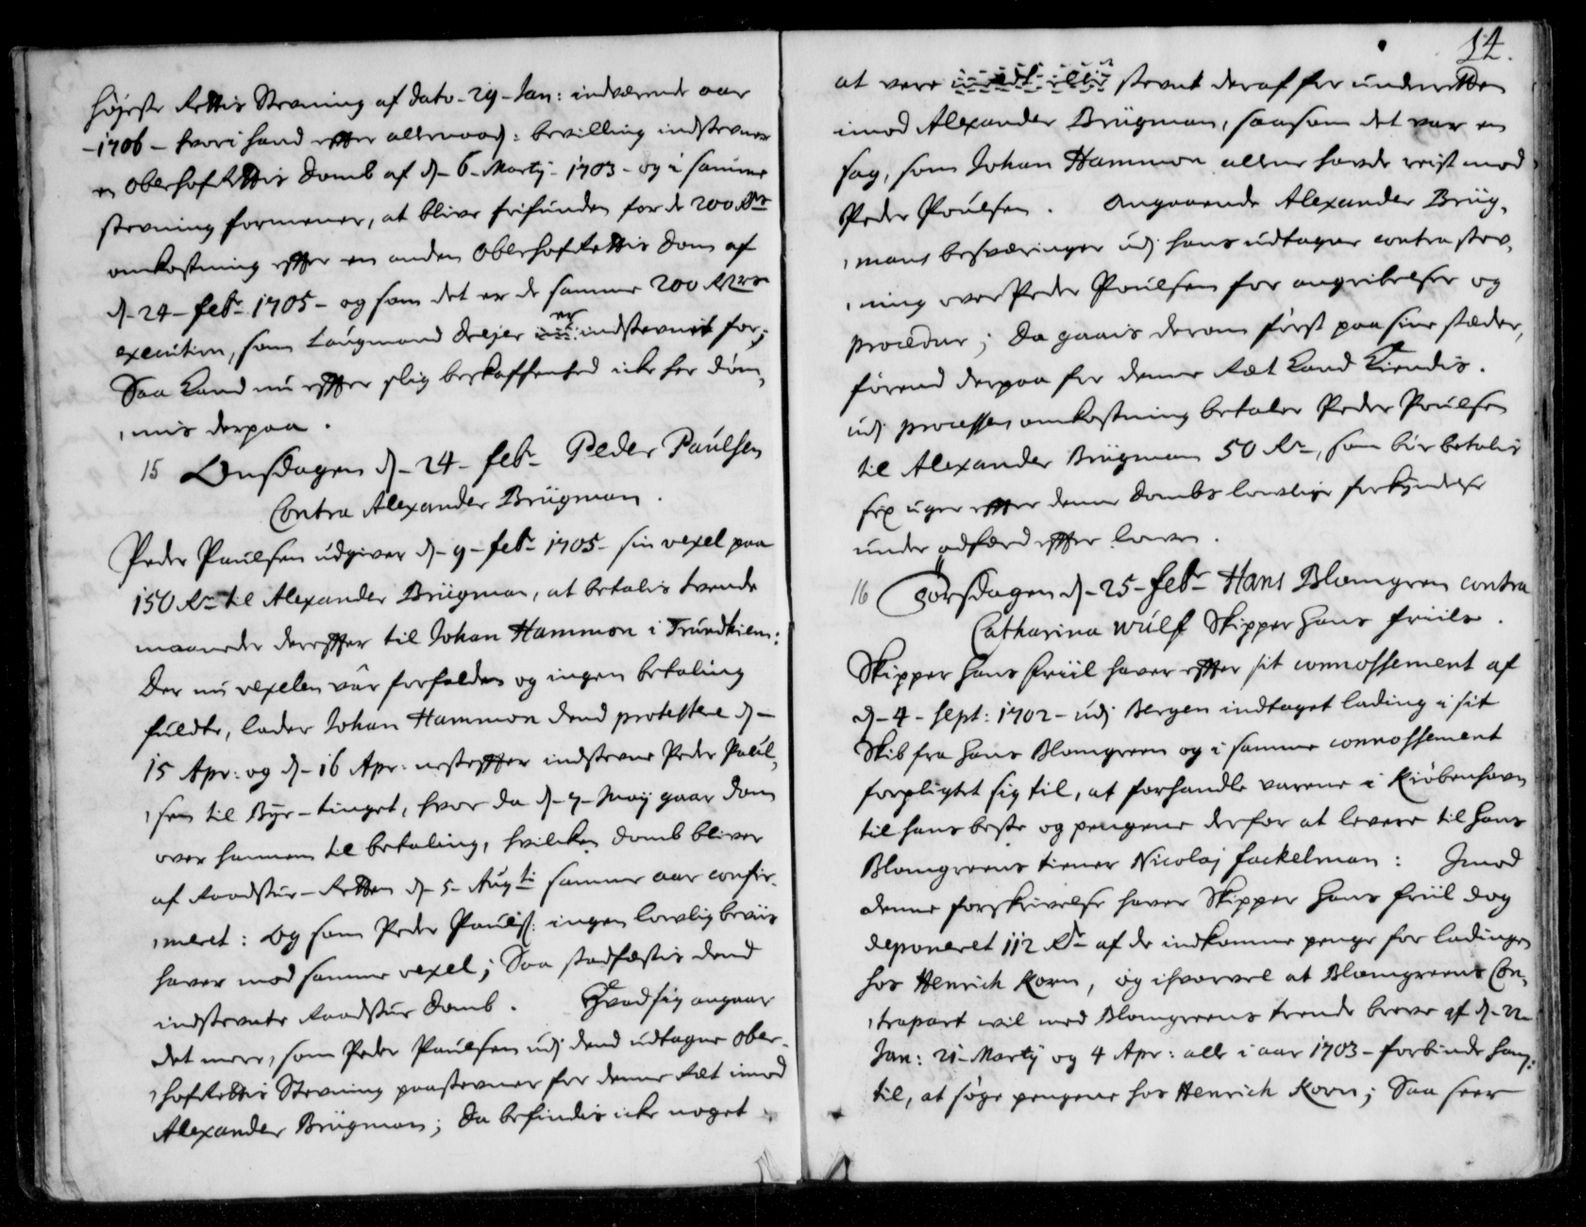 højste Rettis Stevning af dato 29 Jan: indværende aar
1706 - hvori hand effter allernaad: bevilling indstevner
en Oberhofrettis domb af d. 6 Martij 1703 - og i samme
stevning formener, at blive frifunden for de 200 Rdr
omkostning effter en anden Oberhofrettis dom af
d. 24 febr 1705 - og som det er de samme 200 Rdrs
execution, som Laugmand Drejer er indstevnt for;
Saa kand nu effter slig beskaffenhed icke her døm,
,mis derpaa.
15 Onsdagen d. 24 febr Peder Paulsen
Contra Alexander Brügman.
Peder Paulsen udgiver d. 9 febr 1705 sin vexel paa
150 Rdr til Alexander Brügman, at betalis tvende
maaneder dereffter til Johan Hammon i Trundhiem:
Der nu vexelen var forfalden og ingen betaling
fuldte, lader Johan Hammon dend protestere d.
15 Apr: og d. 16 Apr: nesteffter indstevne Peder Paul,
,sen til Bye-tinget, hvor da d. 7 Maij gaar dom
over hannem til betaling, hvilken domb bliver
af Raadstue-Retten d. 5 Augti samme aar confir,
,meret: Og som Peder Pauls: ingen lovlig beviis
haver mod samme vexel; Saa stadfæstis dend
indstevnte Raadstue domb. Hvad sig angaar
det mere, som Peder Paulsen udj dend udtagne Ober,
,hofRettis Stevning paastevner for denne Ræt imod
Alexander Brügman; Da befindis icke noget
14.
at vere stevnt deraf for underretten
imod Alexander Brügman, saasom det var en
sag, som Johan Hammon allene hafde reist mod
Peder Poulsen. Angaaende Alexander Brüg,
,mans besværinger udj hans udtagne contra stev,
,ning over Peder Poulsen for angribelse og
procedur; Da gaais derom først paa sine stæder,
førend derpaa for denne Ræt kand kiendis.
udj processens omkostning betaler Peder Poulsen
til Alexander Brügman 50 Rdr, som bør betalis
sex uger effter denne dombs lovlige forkyndelse
under adfærd effter loven.
16 Torsdagen d. 25 febr Hans Blomgren contra
Catharina Wulf Skipper Hans Friils.
Skipper Hans Friil haver effter sit connossement af
d. 4 Sept: 1702 udj Bergen indtaget lading i sit
Skib fra Hans Blomgreen og i samme connossement
forpligtet sig til, at forhandle varene i Kiøbenhavn
til hans beste og pengene derfor at levere til Hans
Blomgreens tiener Nicolaj Fackelman: Imod
denne forskrivelse haver Skipper Hans Friil dog
deponeret 112 Rdr af de indkomne penge for ladingen
hos Henrich Korn, og ihvorvel at Blomgreens Con,
,trapart vil med Blomgreens trende breve af d. 22
Jan: 21 Martij og 4 Apr: alle i aar 1703 - forbinde ham
til, at søge pengene hos Henrich Korn; Saa seer